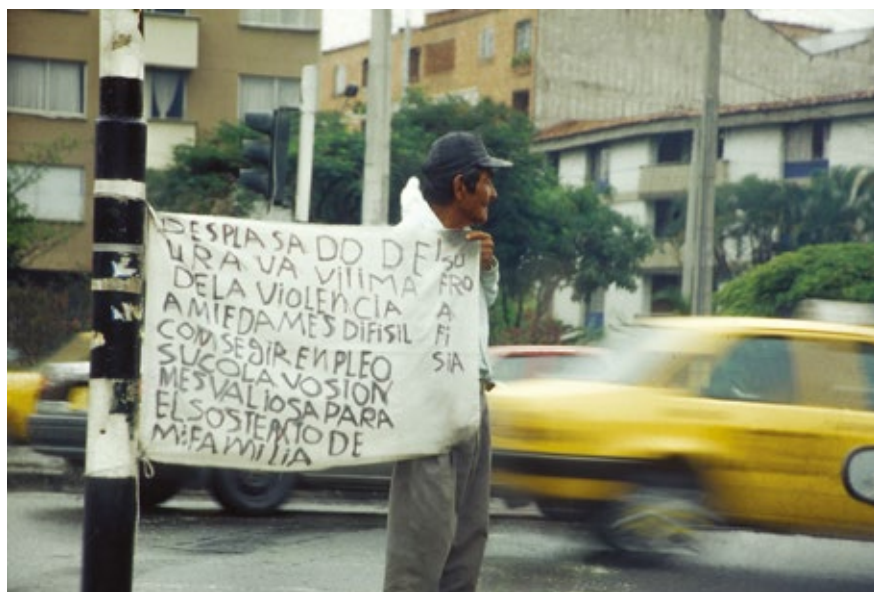 DESPLASADO DE
URAVA VITIMA
DELA VIOLENCIA
AMIEDAMES DIFISIL
COMSEGIR ENPLEO
SUCOLAVOSION
MESVALIOSA PARA
EL SOSTENTO DE
MIFAMILIA
SO
FRO
A
FI
SIA